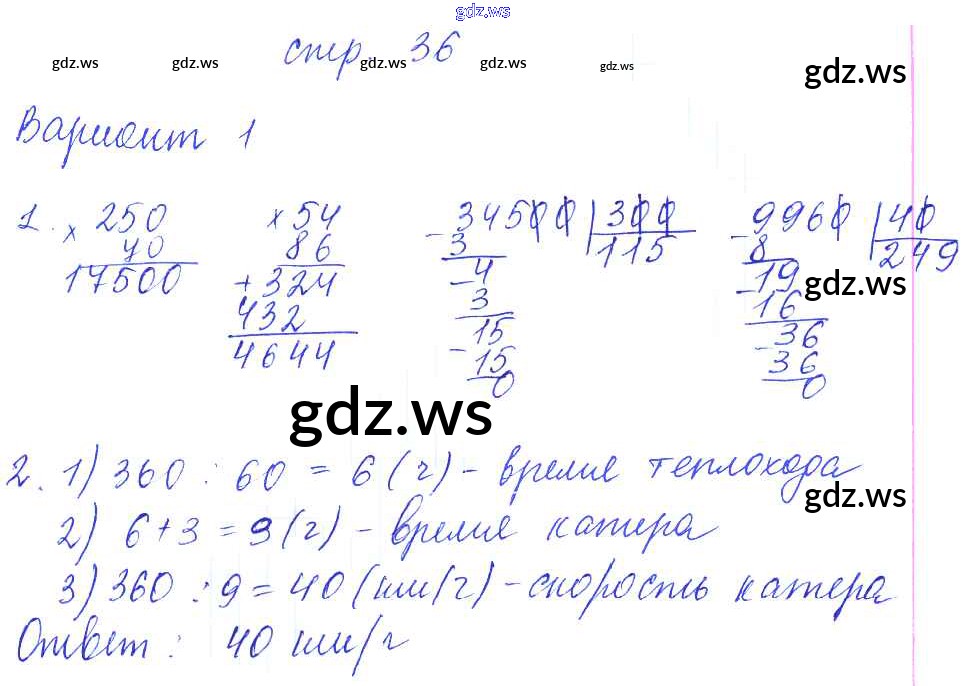 gdz.ws
стр. 36
gdz.ws gdz.ws gdz.ws gdz.ws gdz.ws gdz.ws
Вариант 1
1. × 250 × 54 - 34500 | 300 - 9960 | 40
70 86 3 115 8 249
17500 + 324 - 4 19
432 3 - 16
4644 15 - 36
- 15 36
0 0
gdz.ws
gdz.ws
2. 1) 360 : 60 = 6 (ч) - время теплохода
gdz.ws
2) 6 + 3 = 9 (ч) - время катера
3) 360 : 9 = 40 (км/ч) - скорость катера
Ответ : 40 км/ч